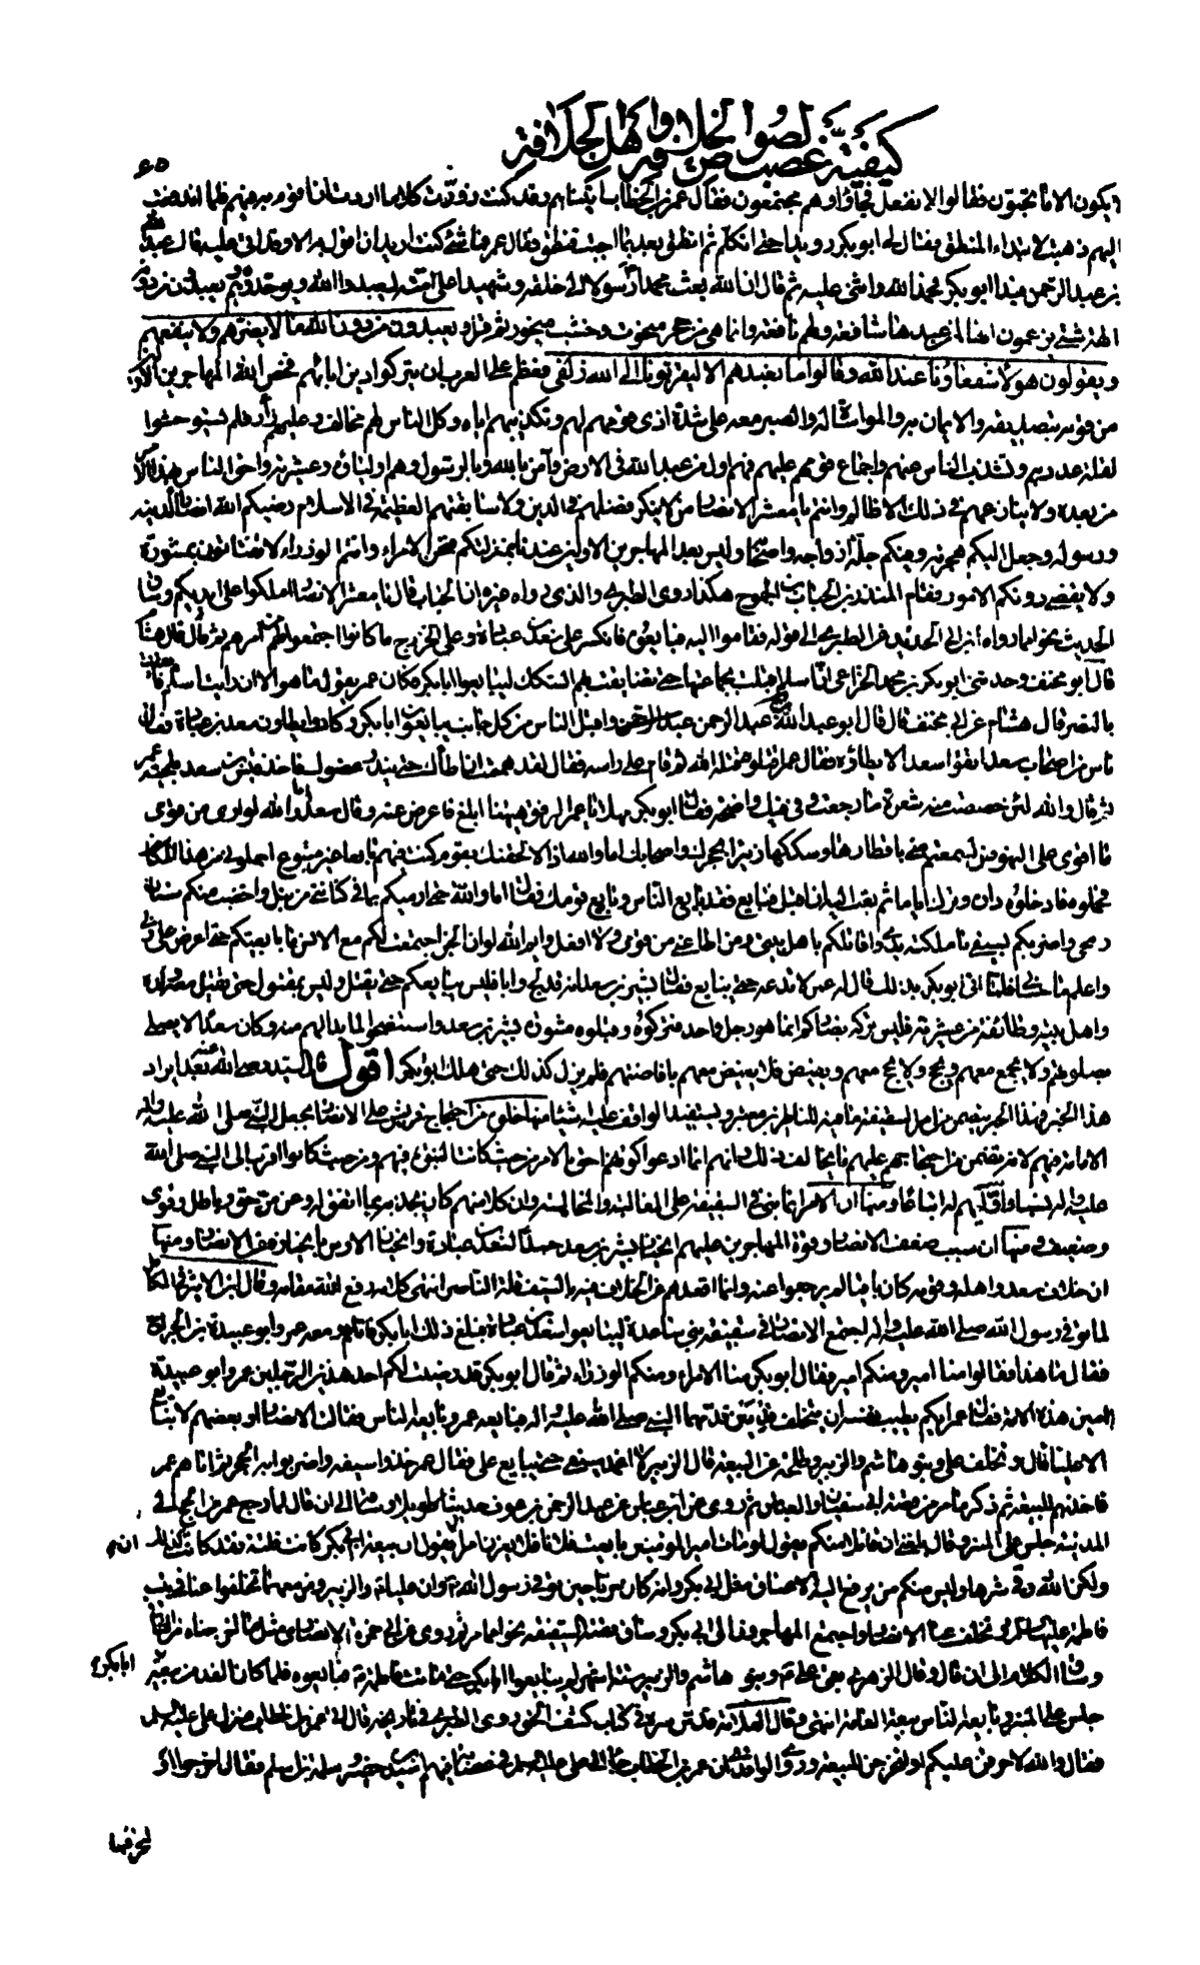 كيفية غصب لصوص الخلافة وأهل الجلافة
٦٥
يكون الا ما تحبون فقالوا لا نفعل فجاؤا وهم مجتمعون فقال عمر بن الخطاب أتيناهم وقد كنت زورت كلاما أردت أن أقوم به فيهم فلما اندفعت
إليهم ذهبت لابتداء المنطق فقال لي أبو بكر رويدا حتى أتكلم ثم انطق بعد بما أحببت فنطق فقال عمر فما شئ كنت أريد أن أقول به الا وقد أتى عليه قال عبد الله
بن عبد الرحمن فبدأ أبو بكر فحمد الله وأثنى عليه ثم قال ان الله بعث محمدا رسولا إلى خلقه وشهيدا على أمته ليعبدوا الله ويوحدوه وهم يعبدون من دونه
آلهة شتى يزعمون انها لمن عبدها شافعة ولهم نافعة وانما هي من حجر منحوت وخشب منجور ثم قرأ ويعبدون من دون الله ما لا يضرهم ولا ينفعهم
ويقولون هؤلاء شفعاؤنا عند الله وقالوا ما نعبدهم الا ليقربونا إلى الله زلفى فعظم على العرب ان يتركوا دين آبائهم فخص الله المهاجرين الأولين
من قومه بتصديقه والايمان به والمواساة له والصبر معه على شدة أذى قومهم لهم وتكذيبهم إياه وكل الناس لهم مخالف وعليهم زار فلم يستوحشوا
لقلة عددهم وتشذب الناس عنهم واجماع قومهم عليهم فهم أول من عبد الله في الأرض وآمن بالله وبالرسول وهم أولياؤه وعشيرته وأحق الناس بهذا الأمر
من بعده ولا ينازعهم في ذلك الا ظالم وأنتم يا معشر الأنصار من لا ينكر فضلهم في الدين ولا سابقتهم العظيمة في الاسلام رضيكم الله أنصارا لدينه
ورسوله وجعل إليكم هجرته وفيكم جلة أزواجه وأصحابه وليس بعد المهاجرين الأولين عندنا بمنزلتكم فنحن الأمراء وأنتم الوزراء لا تفتاتون بمشورة
ولا يقضى دونكم الأمور فقام المنذر بن الحباب بن الجموح هكذا روى الطبري والذي رواه غيره ان الحباب قال يا معشر الأنصار املكوا على أيديكم وساق
الحديث نحوا مما رواه ابن أبي الحديد عن الطبري إلى قوله فقاموا إليه فبايعوه فانكسر على سعد بن عبادة وعلى الخزرج ما كانوا اجتمعوا له من أمرهم ثم قال قال هشام
قال أبو مخنف وحدثني أبو بكر بن محمد الخزاعي ان أسلم أقبلت بجماعتها حتى تضايقت بهم السكك ليبايعوا أبا بكر فكان عمر يقول ما هو الا ان رأيت أسلم فأيقنت
بالنصر قال هشام عن أبي مخنف قال قال عبد الله بن عبد الرحمن وأقبل الناس من كل جانب يبايعون أبا بكر وكادوا يطأون سعد بن عبادة فقال
ناس من أصحاب سعد اتقوا سعدا لا تطأوه فقال عمر اقتلوه قتله الله ثم قام على رأسه فقال لقد هممت ان أطأك حتى يندر عضوك فأخذ قيس بن سعد بلحية عمر
ثم قال والله لئن حصصت منه شعرة ما رجعت وفي فيك واضحة فقال أبو بكر مهلا يا عمر الرفق هيهنا أبلغ فأعرض عنه وقال سعد أما والله لو أرى من قوى
ما أقوى على النهوض لسمعتم مني بأقطارها وسككها زئيرا يجحرك وأصحابك اما والله إذا لألحقنك بقوم كنت فيهم تابعا غير متبوع احملوني من هذا المكان
فحملوه فأدخلوه داره وترك أياما ثم بعث إليه ان أقبل فبايع فقد بايع الناس وبايع قومك فقال اما والله حتى أرميكم بما في كنانتي من نبل وأخضب منكم سنان
رمحي وأضربكم بسيفي ما ملكته يدي وأقاتلكم بأهل بيتي ومن أطاعني من قومي ولا أفعل وأيم الله لو ان الجن اجتمعت لكم مع الانس ما بايعتكم حتى أعرض على ربي
وأعلم ما حسابي فلما أتى أبو بكر بذلك قال له عمر لا تدعه حتى يبايع فقال بشير بن سعد انه قد لج وأبى فليس يبايعكم حتى يقتل وليس بمقتول حتى يقتل معه ولده
وأهل بيته وطائفة من عشيرته فليس تركه بضاركم انما هو رجل واحد فتركوه وقبلوه مشورة بشير بن سعد واستنصحوا لما بدا لهم منه وكان سعد لا يصلي
بصلوتهم ولا يجمع معهم ويحج ولا يحج معهم ويفيض فلا يفيض معهم بافاضتهم فلم يزل كذلك حتى هلك أبو بكر أقول قال السيد رضي الله عنه بعد ايراد
هذا الخبر فهذا الخبر يتضمن من أمر السقيفة ما فيه للناظرين معتبر ويستفيد الواقف عليه أشياء منها خلوه من احتجاج قريش على الأنصار بجعل النبي صلى الله عليه وآله
الإمامة فيهم لأنه يتضمن من احتجاجهم عليهم ما يخالف ذلك وانهم انما ادعوا كونهم أحق بالأمر من حيث كانت النبوة فيهم ومن حيث كانوا أقرب إلى النبي صلى الله
عليه وآله نسبا وأولهم له اتباعا ومنها ان الأمر انما بنى في السقيفة على المغالبة والمخالسة وان كلا منهم كان يجذبه بما اتفق له وعن من حق وباطل وقوي
وضعيف ومنها ان سبب ضعف الأنصار وقوة المهاجرين عليهم انحياز بشير بن سعد حسدا لسعد بن عبادة وانحياز الأوس بانحيازه عن الأنصار ومنها
ان خلاف سعد وأهله وقومه كان باقيا لم يرجعوا عنه وانما أقعدهم عن الخلاف فيه بالسيف قلة الناصر انتهى كلامه رفع الله مقامه وقال ابن الأثير في الكامل
لما توفي رسول الله صلى الله عليه وآله اجتمع الأنصار في سقيفة بني ساعدة ليبايعوا سعد بن عبادة فبلغ ذلك أبا بكر فأتاهم ومعه عمر وأبو عبيدة بن الجراح
فقال ما هذا فقالوا منا أمير ومنكم أمير فقال أبو بكر منا الأمراء ومنكم الوزراء ثم قال أبو بكر قد رضيت لكم أحد هذين الرجلين عمر وأبو عبيدة
أمين هذه الأمة فقال عمر أيكم يطيب نفسا ان يخلف قدمين قدمهما النبي صلى الله عليه وآله فبايعه عمر وبايعه الناس فقالت الأنصار أو بعضهم لا نبايع
الا عليا قال وتخلف علي وبنو هاشم والزبير وطلحة عن البيعة قال الزبير لا أغمد سيفي حتى يبايع علي فقال عمر خذوا سيفه واضربوا به الحجر ثم أتاهم عمر
فأخذهم للبيعة ثم ذكر ما مر من قصة أبي سفيان والعباس ثم روى عن ابن عباس عن عبد الرحمن بن عوف حديثا طويلا وساقه إلى ان قال لما رجع عمر من الحج إلى
المدينة جلس على المنبر وقال بلغني ان قائلا منكم يقول لو مات أمير المؤمنين بايعت فلانا فلا يغرن امرأ ان يقول ان بيعة أبي بكر كانت فلتة فقد كانت كذلك
ولكن الله وقى شرها وليس منكم من يقطع إليه الأعناق مثل أبي بكر وانه كان من خبرنا حين توفي رسول الله ص وان عليا ع والزبير ومن معهما تخلفوا عنا في بيت
فاطمة عليها السلام وتخلف عنا الأنصار واجتمع المهاجرون إلى أبي بكر وساق قصة السقيفة نحوا مما مر ثم روى عن أبي عمرة الأنصاري مثل ما أخرجناه من
وساق الكلام إلى ان قال وقال الزهري بقي علي ع وبنو هاشم والزبير ستة أشهر لم يبايعوا أبا بكر حتى ماتت فاطمة ع فبايعوه فلما كان الغد من بيعة
أبا بكر
جلس على المنبر وبايعه الناس بيعة العامة انتهى وقال العلامة قدس سره في كتاب كشف الحق روى الطبري في تاريخه قال أتى عمر بن الخطاب منزل علي عليه السلام
فقال والله لأحرقن عليكم أو لتخرجن للبيعة وروى الواقدي ان عمر بن الخطاب جاء إلى علي عليه السلام في عصابة فيهم أسيد بن حضير وسلمة بن أسلم فقال اخرجوا أو
لنحرقنها